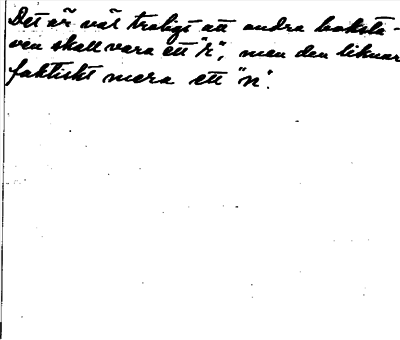 Det är väl troligt att andra boksta-
ven skall vara ett "r", men den liknar
faktiskt mera ett "n".